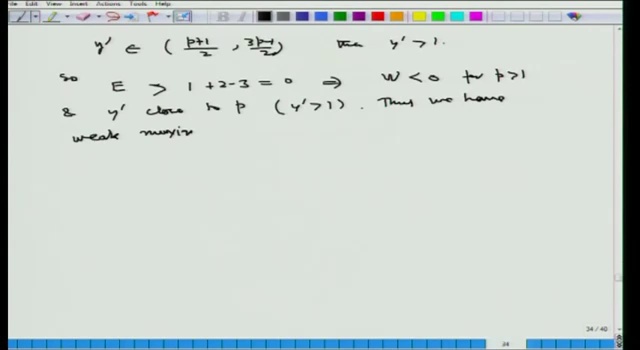 File Edit View Insert Actions Tools Help
y' ∈ ( p+1/2 , 3p-1/2 ) then y' > 1.
So E > 1 + 2 - 3 = 0 ⇒ W < 0 for p > 1
& y' close to p ( y' > 1 ) . Thus we have
weak maxim
34 / 40
34